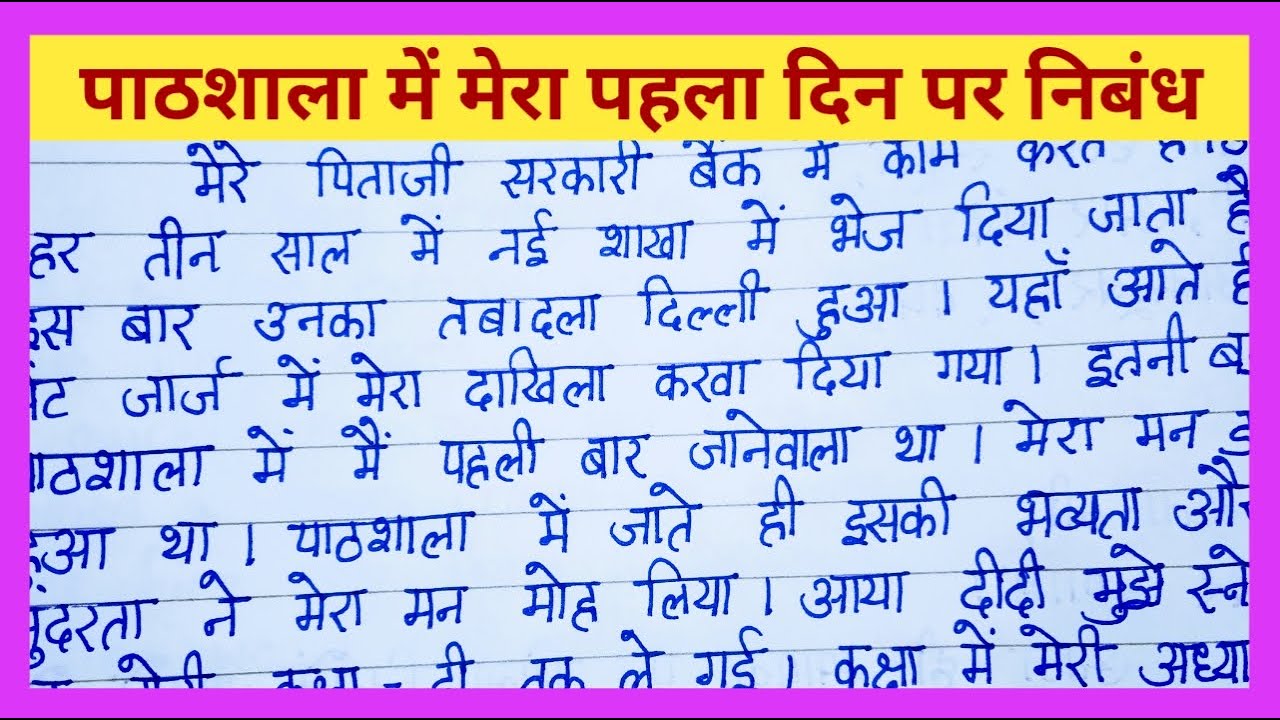 पाठशाला में मेरा पहला दिन पर निबंध
मेरे पिताजी सरकारी बैंक में काम करते
हर तीन साल में नई शाखा में भेज दिया जाता है
इस बार उनका तबादला दिल्ली हुआ । यहाँ आते
जार्ज में मेरा दाखिला करवा दिया गया । इतनी
पाठशाला में मैं पहली बार जानेवाला था । मेरा मन
हुआ था । पाठशाला में जाते ही इसकी भव्यता और
सुंदरता ने मेरा मन मोह लिया । आया दीदी मुझे
मेरी कक्षा - तक ले गई । कक्षा में मेरी